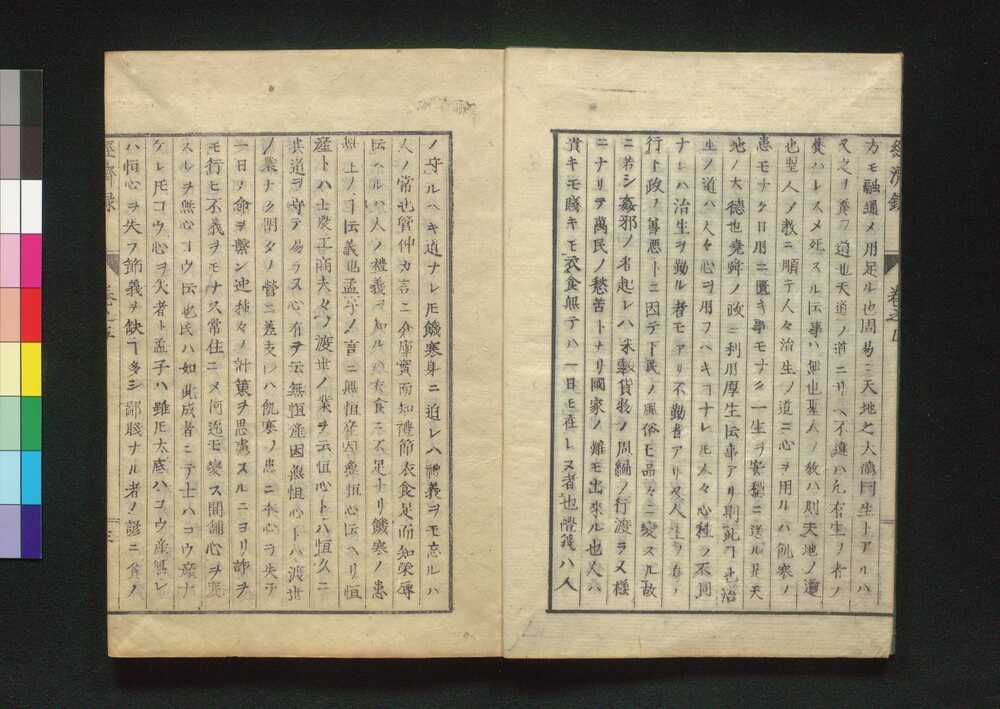 方モ融通メ用足ル也周易ニ天地之大德曰生トアルハ
又之ヲ養フ道也天道ノ道ニリヘ不違ハ凡有生ノ者ノ
養ハレスメ死スル伝事ハ無也聖人ノ敎ハ則天地ノ道
也聖人ノ敎ニ順テ人々治生ノ道ニ心ヲ用ルハ飢寒ノ
患モナク日用ニ匱キ事モナク一生ヲ安穏ニ送ル㠯天
地ノ大德也堯舜ノ政ニ利用厚生伝事アリ則此ヿ也治
生ノ道ハ人々心ヲ用フヘキヿナレ𪜈太々心種ラ不同
ナレハ治生ヲ勤ル者モアリ不勤者アリ又人主ノ
行ト政ノ善悪トニ因テ下民ノ風俗モ品々ニ変スル故
ニ若シ姦邪ノ者起レハ米穀貨物ノ周編ノ行渡ラヌ様
ニナリヲ萬民ノ愁苦トナリ國家ノ難モ出来ル也又ハ
貴キモ賤キモ衣食無テハ一日モ在レヌ者也幣錢ハ人
ノ守ルヘキ道ナレ𪜈饑寒身ニ迫レハ禮義ヲモ忘ルハ
人ノ常也管仲カ言ニ倉庫實而知禮節衣食足而知榮辱
伝ヘルハ人ノ禮義ヲ知ルハ衣食ニ不足ナリ饑寒ノ患
無上ノヿ伝義也孟子ノ言ニ無恒産因無恒心伝ヘリ恒
産トハ士農工商夫々ノ渡世ノ業ヲ云恒心トハ恒久ニ
其道ヲ守テ易ラス心有ヲ云無恒産因無恒心トハ渡世
ノ業ナク朝夕ノ營ニ差支ハ飢寒ノ患ニ本心ヲ失テ
一日ノ命ヲ繫ン迚種々ノ計策ヲ思慮スルニヨリ詐ヲ
モ行ヒ不義ヲモナス常住ニメ何迄モ變ス間鋪心ヲ變
スルヲ無心コウ伝也民ハ如此成者ニテ士ハコウ産ナ
ケレ𪜈コウ心ヲ失者ト孟子ハ雖𪜈太底ハコウ産無レ
ハ恒心ヲ失フ節義ヲ缺ヿ多シ鄙賤ナル者ノ諺ニ貪ノ
經濟録
卷之五